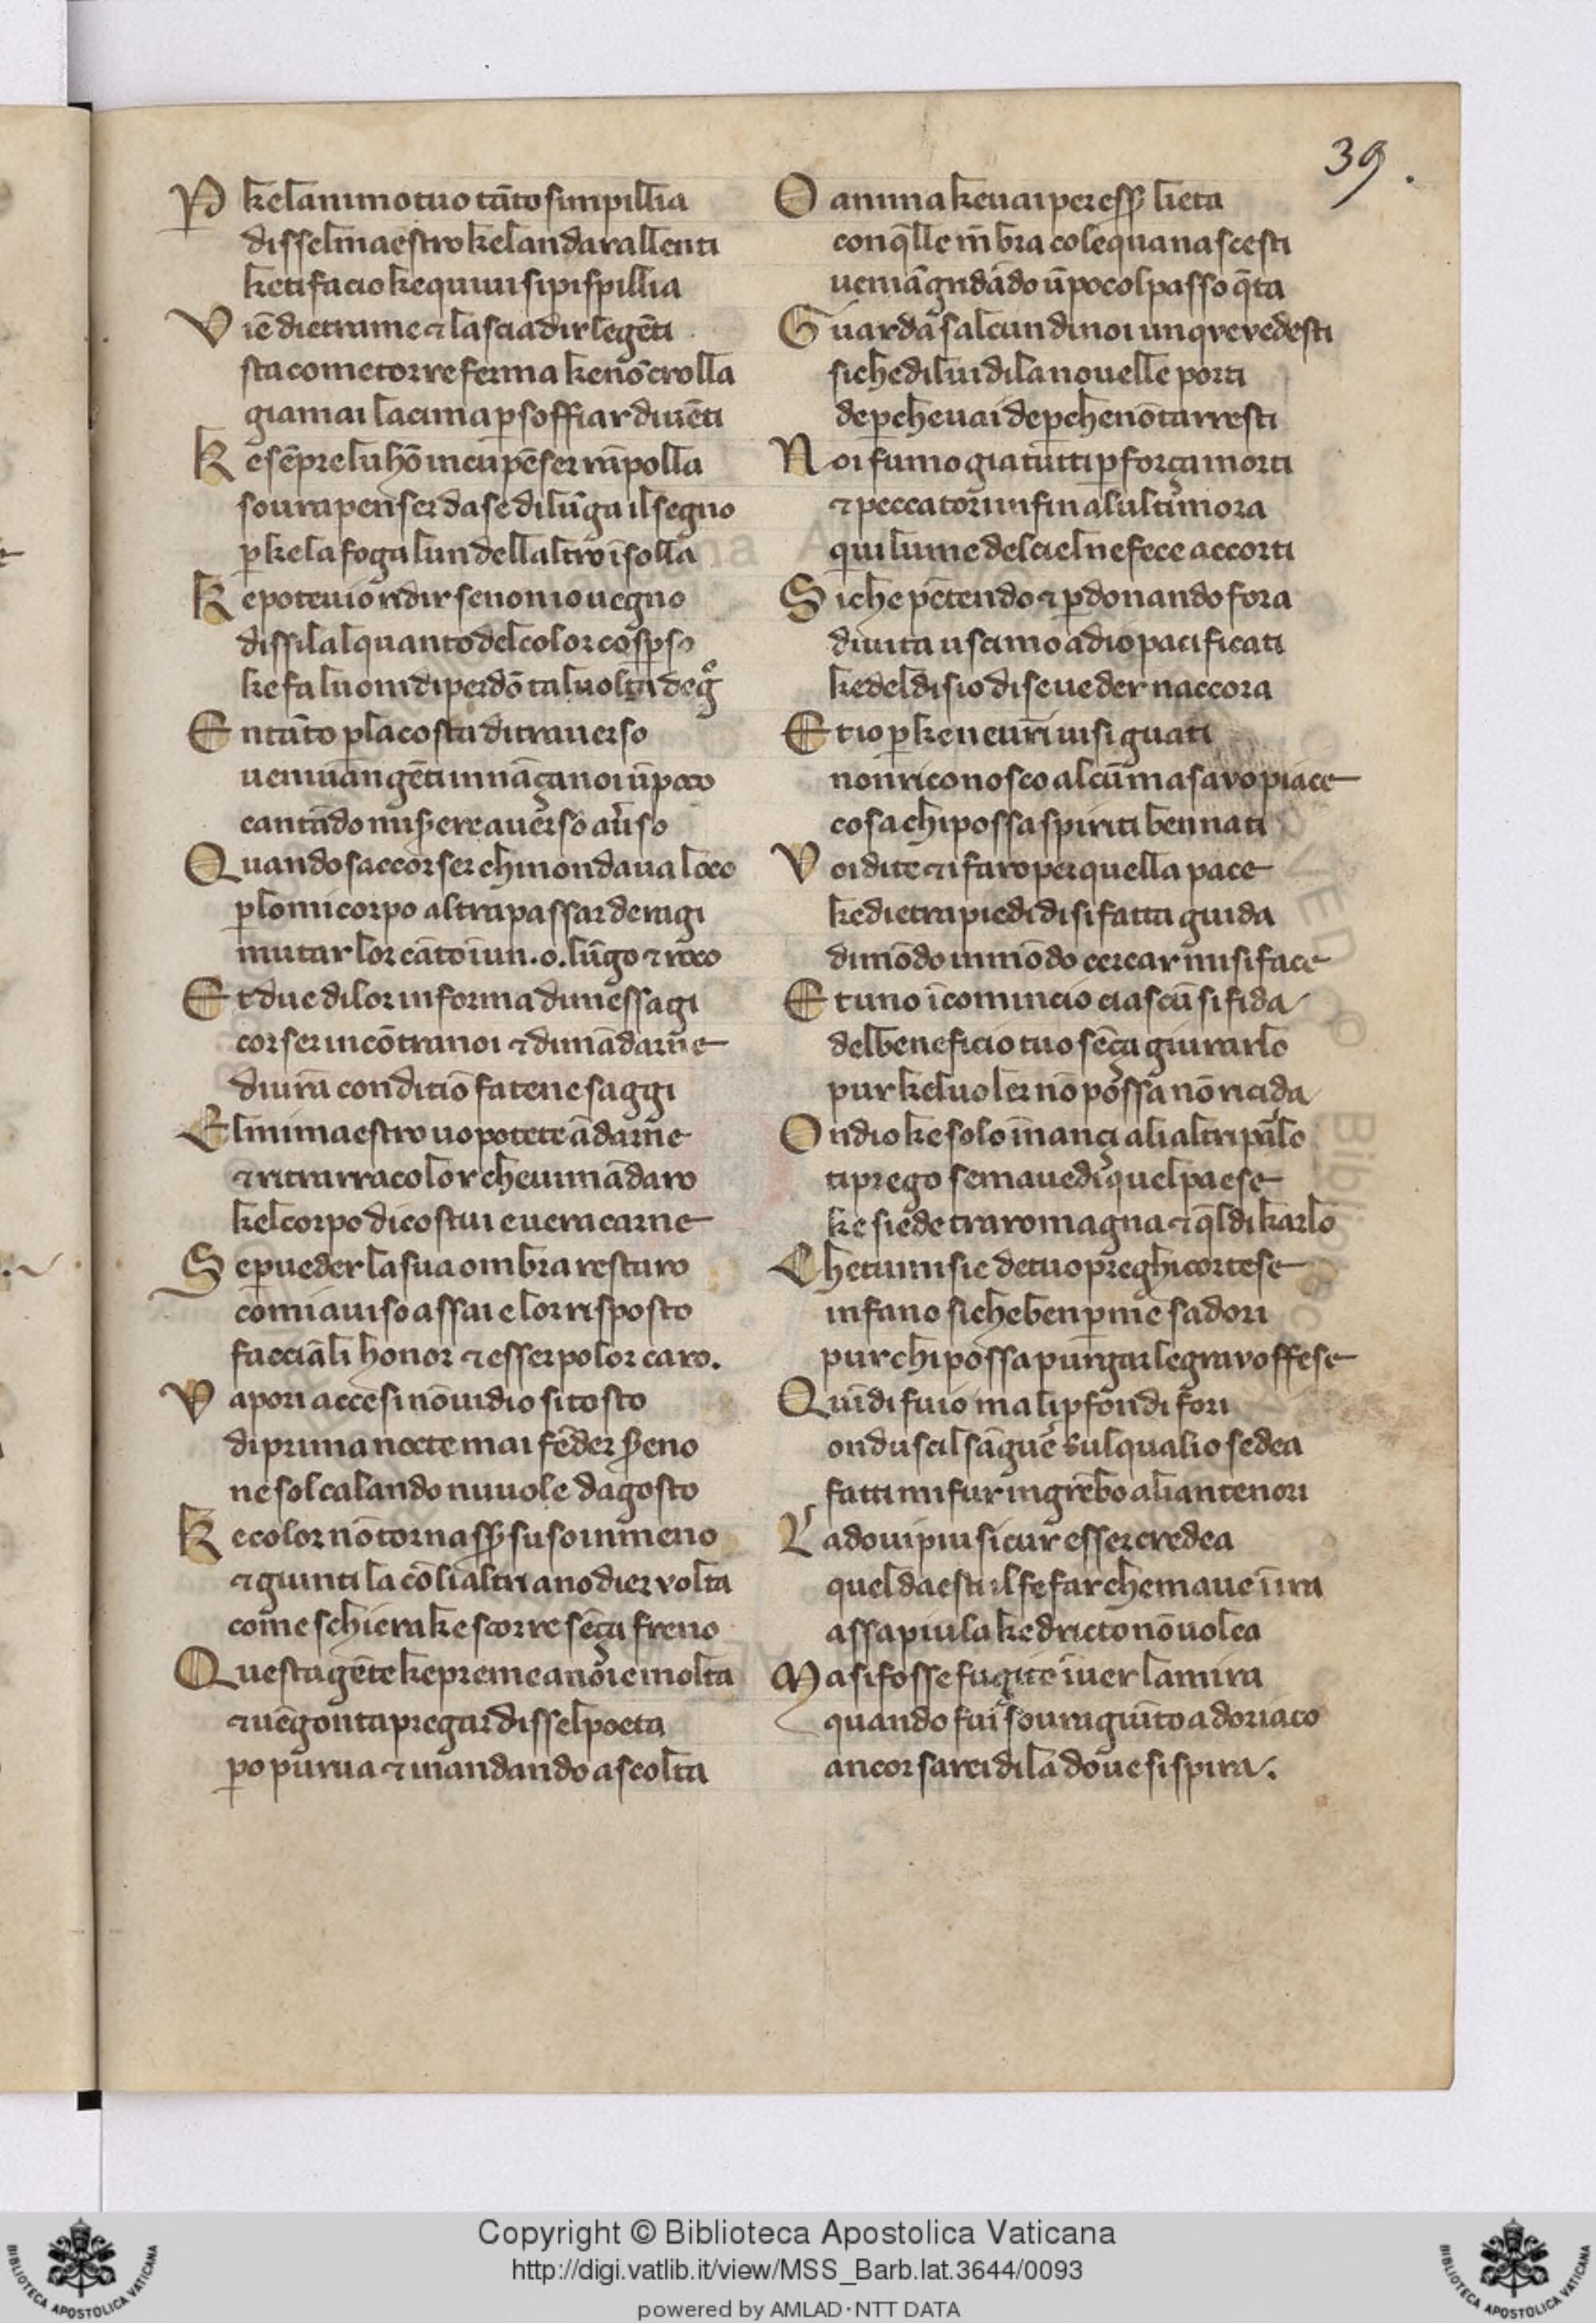 39.
P kelanimotuo tāto simpillia
disselmaestro kelandarallenti
ketifacio kequiui sipispillia
Viē dietrame ⁊ lasciadirlegēti
sta come torre ferma kenō crolla
giamai lacima ꝑ soffiar diuēti
Ke sēpre luhō incui pēser rāpolla
soura penser dase dilūga il segno
ꝑke la foga lun dellaltro īsolla
Ke poteuio ridir senonio uegno
dissilalquanto del color cosꝑso
ke fa luom di perdō taluolta degͦ
E ntāto ꝑ la costa di trauerso
ueniuan gēti innāçi anoi ūpoco
cantādo miserere auerso a uerso
Quando saccorser chinondaua loco
ꝑlo mi corpo al trapassar deragi
mutar lor cāto iun .o. lūgo ⁊ roco
E t due di lor in forma dimessagi
corser incōtra noi ⁊ dimādarne
diurā conditiō fatene saggi
El mi maestro uo potete ādarne
⁊ ritrarra color che uimādaro
kel corpo di costui e uera carne
Se ꝑ ueder la sua ombra restaro
comi auiso assai e lor risposto
facciāli honor ⁊ esser po lor caro.
Vapori accesi nō uidio si tosto
di prima nocte mai fēder sereno
ne sol calando nuuole dagosto
Ke color nō tornasser suso inmeno
⁊ giunti la cō li altri anoi dier volta
come schiera ke scorre sēça freno
Questa gēte ke preme anoi e molta
⁊ uēgonta pregar disse l poeta
ꝑo pur ua ⁊ inandando ascolta
O anima keuai per esser lieta
con qlle mēbra cole qua nascesti
ueniā gridādo ū poco l passo qta
Guarda salcun di noi unqve vedesti
siche di lui di la nouelle porti
de ꝑche uai de ꝑche nō tarresti
Noi fumo gia tutti ꝑ força morti
⁊ peccatori infin alultimora
qui lume del ciel ne fece accorti
Siche pētendo ⁊ ꝑdonando fora
di uita uscimo a dio pacificati
ke del disio di se ueder naccora
E tio ꝑke ne uri uisi guati
non riconosco alcū ma sa vo piace
cosa chi possa spiriti bennati
Voi dite ⁊ i faro per quella pace
ke dietra piedi di si fatta guida
di mōdo in mōdo cercar mi si face
E t uno īcomincio ciascū si fida
del beneficio tuo sēça giurarlo
pur kel uoler nō possa nō ricida
Ondio ke solo īnançi ali altri parlo
ti prego se mai uedi quel paese
ke siede tra romagna ⁊ ql di karlo
Che tu mi sie de tuo preghi cortese
in fano si che ben ꝑ me sadori
pur chi possa purgar le gravoffese
Quīdi fuio ma li ꝑfondi fori
ondusci l sāgue sul qualio sedea
fatti mi fur in grēbo ali antenori
La doui piu sicur esser credea
quel da esti il fe far che maue in ira
assa piu la ke dricto nō uolea
Ma si fosse fugito īuer la mira
quando fui souragiūto a doriaco
ancor sarei di la doue si spira.
Copyright © Biblioteca Apostolica Vaticana
http://digi.vatlib.it/view/MSS_Barb.lat.3644/0093
powered by AMLAD·NTT DATA
BIBLIOTECA APOSTOLICA VATICANA
BIBLIOTECA APOSTOLICA VATICANA